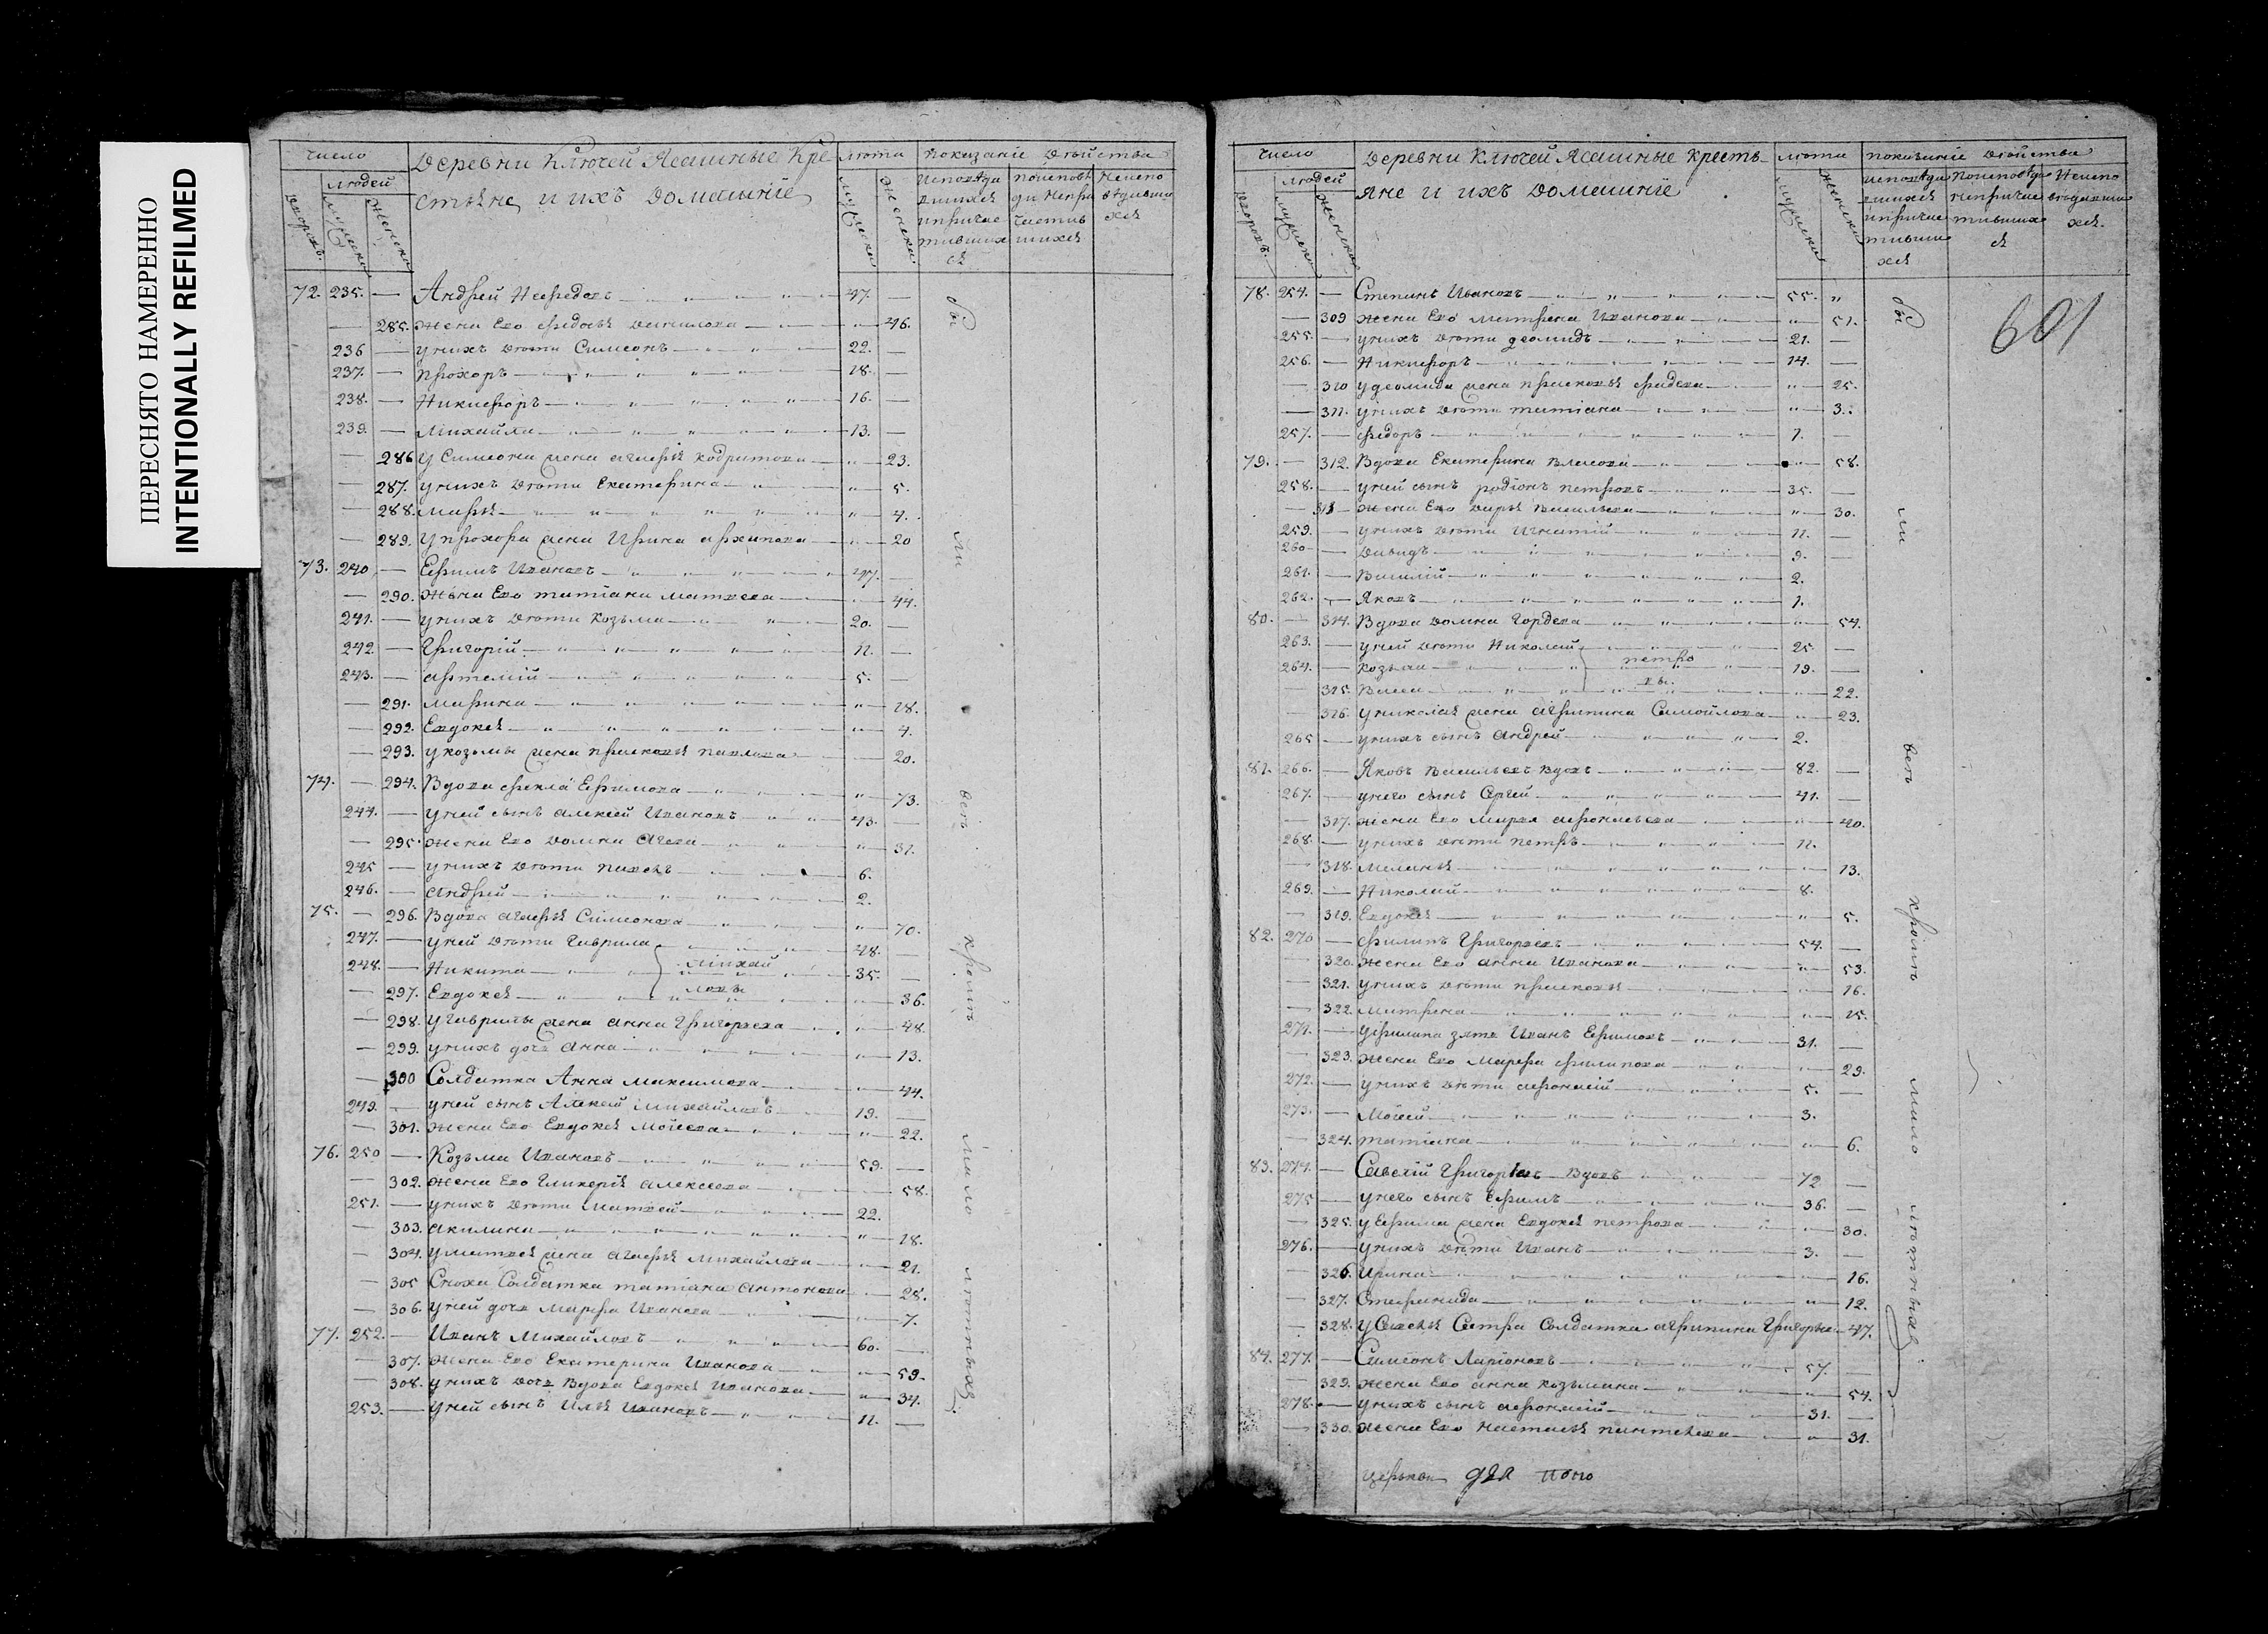 ПЕРЕСНЯТО НАМЕРЕННО
INTENTIONALLY REFILMED
Число
Деревни Ключей Ясашные Кре
стьяне и ихъ домашнiе
лѣта
показанiе двойства
людей
72. 235. — Андрей Нефедовъ 47. —
— 285. жена Его Федосья Данилова — 46.
236 — у нихъ дѣти Симеонъ 22. —
237. — Прохоръ 18. —
238. — Никифоръ 16. —
239. — Михайла 13. —
— 286 у Симеона жена Агафья Кодратова — 23.
— 287. у нихъ дѣти Екатерина — 5.
— 288. Марья — 4.
— 289. у Прохора жена Ирина Архипова — 20
73. 240 — Ефимъ Ивановъ 47. —
— 290. жена Его Татiана Матвеева — 44.
241. — у нихъ дѣти Козьма 20. —
242. — Григорiй 11. —
243. — Артемiй 5. —
— 291. Марина — 18.
— 292. Евдокея — 4.
— 293. у Козьмы жена Прасковья Павлова — 20.
74. — 294. Вдова Фекла Ефимова — 73.
244. — у ней сынъ Алексей Ивановъ 43. —
— 295. жена Его Домна Агеева — 31.
245 — у нихъ дѣти Павелъ 6.
246. — Андрей 2.
75. — 296. Вдова Агафья Симеонова — 70.
247. — у ней дѣти Гаврила 48. —
248. — Никита Михай 35. —
— 297. Евдокея ловы — 36.
— 298. у Гаврилы жена Анна Григорьева — 48.
— 299. у нихъ дочь Анна — 13.
— 300 Солдатка Анна Максимова — 44.
249. — у ней сынъ Алексей Михайловъ 19. —
— 301. жена Его Евдокея Мосеева — 22.
76. 250 — Козьма Ивановъ 59. —
— 302. жена Его Гликерья Алексеева — 58.
251. — у нихъ дѣти Матвей 22.
— 303. Акилина — 18.
— 304. у Матвея жена Агафья Михайлова — 21.
— 305 Сноха Солдатка Татiана Антонова — 28.
— 306. у ней дочь Марфа Иванова — 7.
77. 252. — Иванъ Михайловъ 60. —
— 307. жена Его Екатерина Иванова — 59.
— 308. у нихъ дочь Вдова Евдокея Иванова — 34.
253. — у ней сынъ Илья Ивановъ 11. —
были
все
кромѣ
мало
лѣтныхъ
Число
Деревни Ключей Ясашные Кресть
яне и ихъ домашнiе
лѣта
показанiе двойства
людей
601
78. 254. — Степанъ Ивановъ 55. „
— 309 жена Его Матрена Иванова — 51.
255. — у нихъ дѣти Деомидъ 21. —
256. — Никифоръ 14. —
— 310 у Деомида жена Прасковья Фадеева — 25.
— 311. у нихъ дѣти Татiана — 3.
257. — Федоръ 1. —
79. — 312. Вдова Екатерина Власова — 58.
258. — у ней сынъ Родiонъ Петровъ 35. —
— 313 — жена Его Дарья Васильева — 30.
259. — у нихъ дѣти Игнатiй 11. —
260 — Давидъ 9.
261. — Василiй 2.
262. — Яковъ 1.
80. — 314. Вдова Домна Гордеева — 54.
263. — у ней дѣти Николай 25. —
264. — Козьма петро 19. —
— 315. Васса вы. — 22.
— 316. у Николая жена Агрипина Самойлова — 23.
265 — у нихъ сынъ Андрей 2.
81. 266. — Яковъ Васильевъ Вдовъ 82. —
267. — у него сынъ Сергей 41. —
— 317. жена Его Марья Афонасьева — 40.
268. — у нихъ дѣти Петръ 11. —
— 318. Меланья — 13.
269. — Николай 8.
— 319. Евдокея — 5.
82. 270 — Филипъ Григорьевъ 54. —
— 320. жена Его Анна Иванова — 53.
— 321. у нихъ дѣти Прасковья — 16.
— 322. Матрена — 15.
271. — у Филипа зять Иванъ Ефимовъ 31. —
— 323. жена Его Марфа Филипова — 29.
272. — у нихъ дѣти Афонасiй 5. —
273. — Мосей 3.
— 324. Татiана — 6.
83. 274. — Савелiй Григорьевъ Вдовъ 72 —
275 — у него сынъ Ефимъ 36. —
— 325. у Ефима жена Евдокея Петрова — 30.
276. — у нихъ дѣти Иванъ 3. —
— 326. Ирина — 16.
— 327. Стефанида — 12.
— 328. у Савелья Сестра Солдатка Агрипина Григорьева 47.
84. 277. — Симеонъ Ларiоновъ 57. —
— 329. жена Его Анна Козьмина — 54.
278. — у нихъ сынъ Афонасiй 31. —
— 330. жена Его Настасья Пантелеева — 31.
были
все
кромѣ
мало
лѣтныхъ
церькви